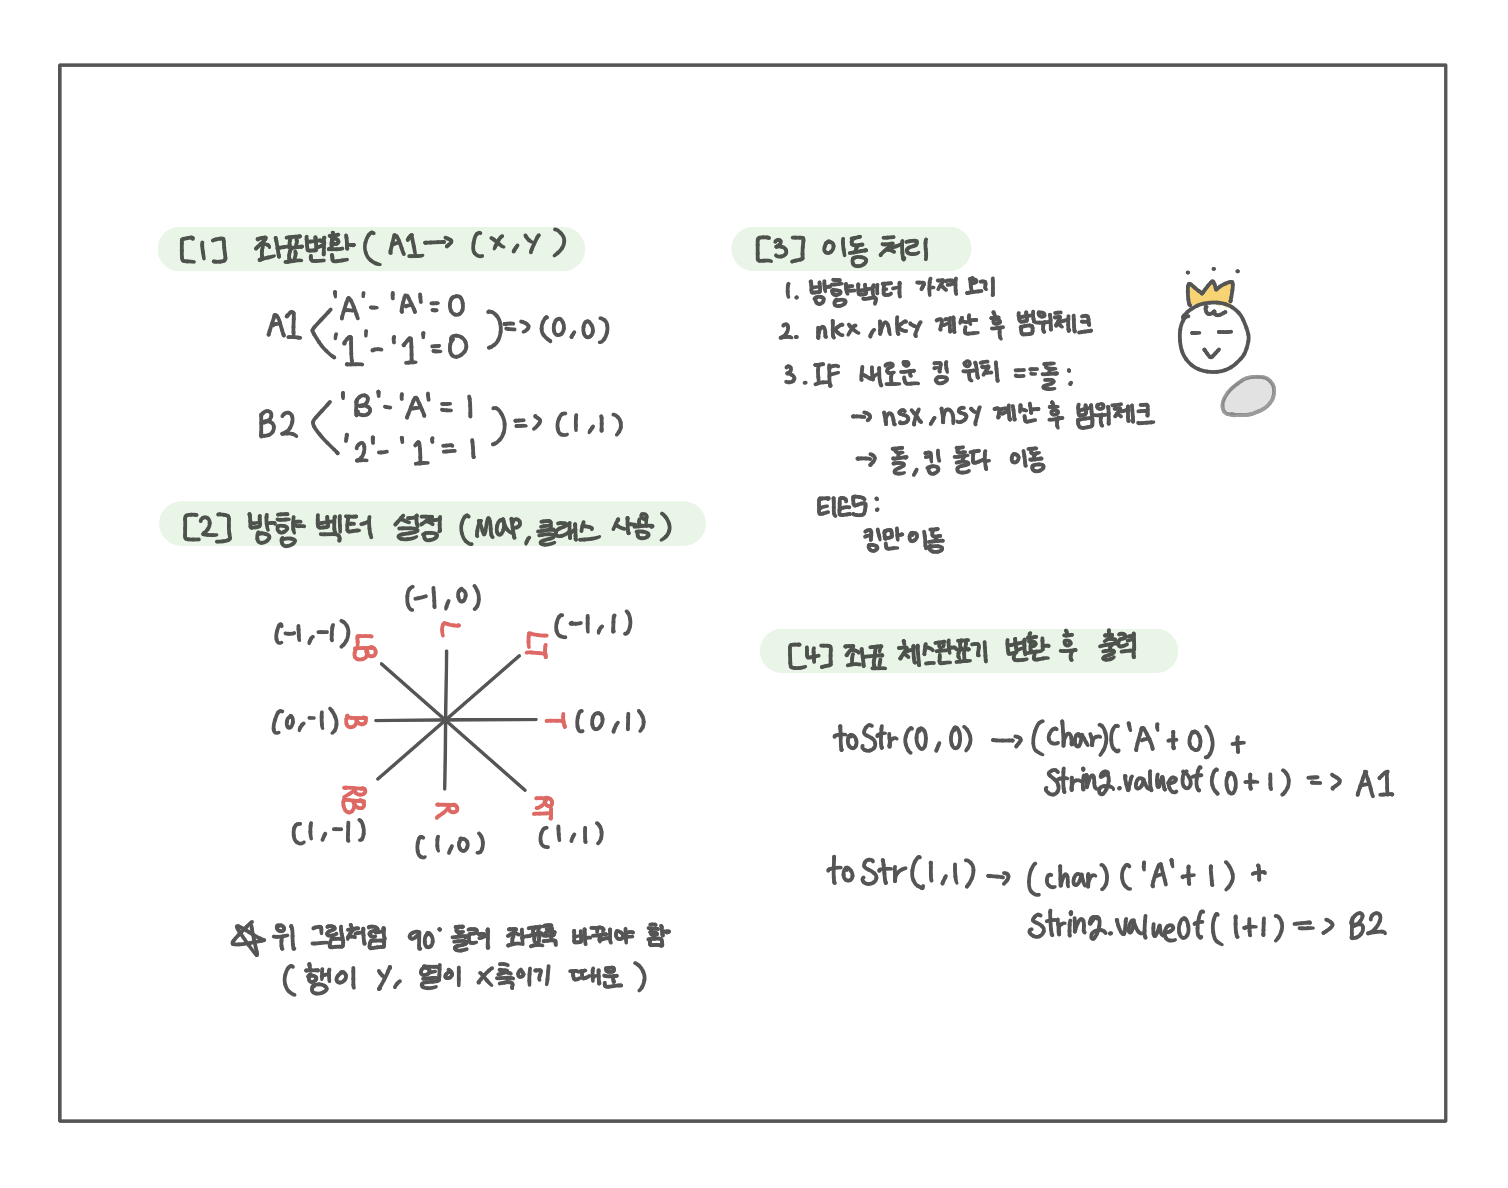 [1] 좌표변환 (A1→ (x,y)
A1 'A'-'A'=0
'1'-'1'=0 => (0,0)
B2 'B'-'A'=1
'2'-'1'=1 => (1,1)
[2] 방향 벡터 설정 (MAP, 클래스 사용)
(-1,0)
(-1,-1) LB L LT (-1,1)
(0,-1) B T (0,1)
RB R RT
(1,-1) (1,0) (1,1)
☆ 위 그림처럼 90° 돌려 좌표축 바꿔야 함
(행이 y, 열이 x축이기 때문)
[3] 이동 처리
1. 방향벡터 가져오기
2. nkx, nky 계산 후 범위체크
3. IF 새로운 킹 위치 == 돌:
→ nsx, nsy 계산 후 범위체크
→ 돌, 킹 둘다 이동
킹만 이동
[4] 좌표 체스판표기 변환 후 출력
toStr(0,0) → (char)('A'+0) +
String.valueOf(0+1) => A1
toStr(1,1) → (char) ('A'+1) +
String.valueOf(1+1) => B2